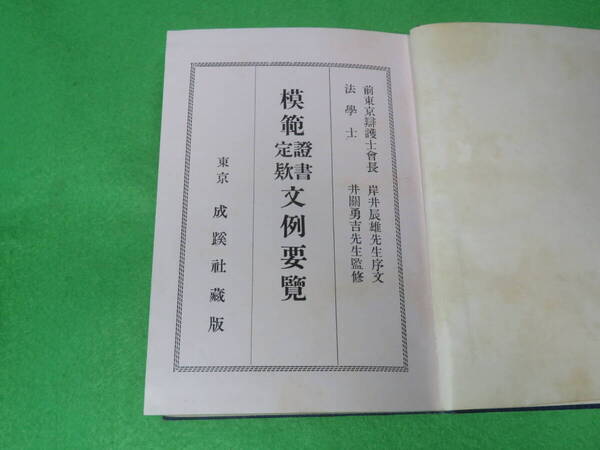 前東京辯護士會長 岸井辰雄先生序文
法學士 井關勇吉先生監修
模範證書定欵文例要覽
東京 成蹊社藏版